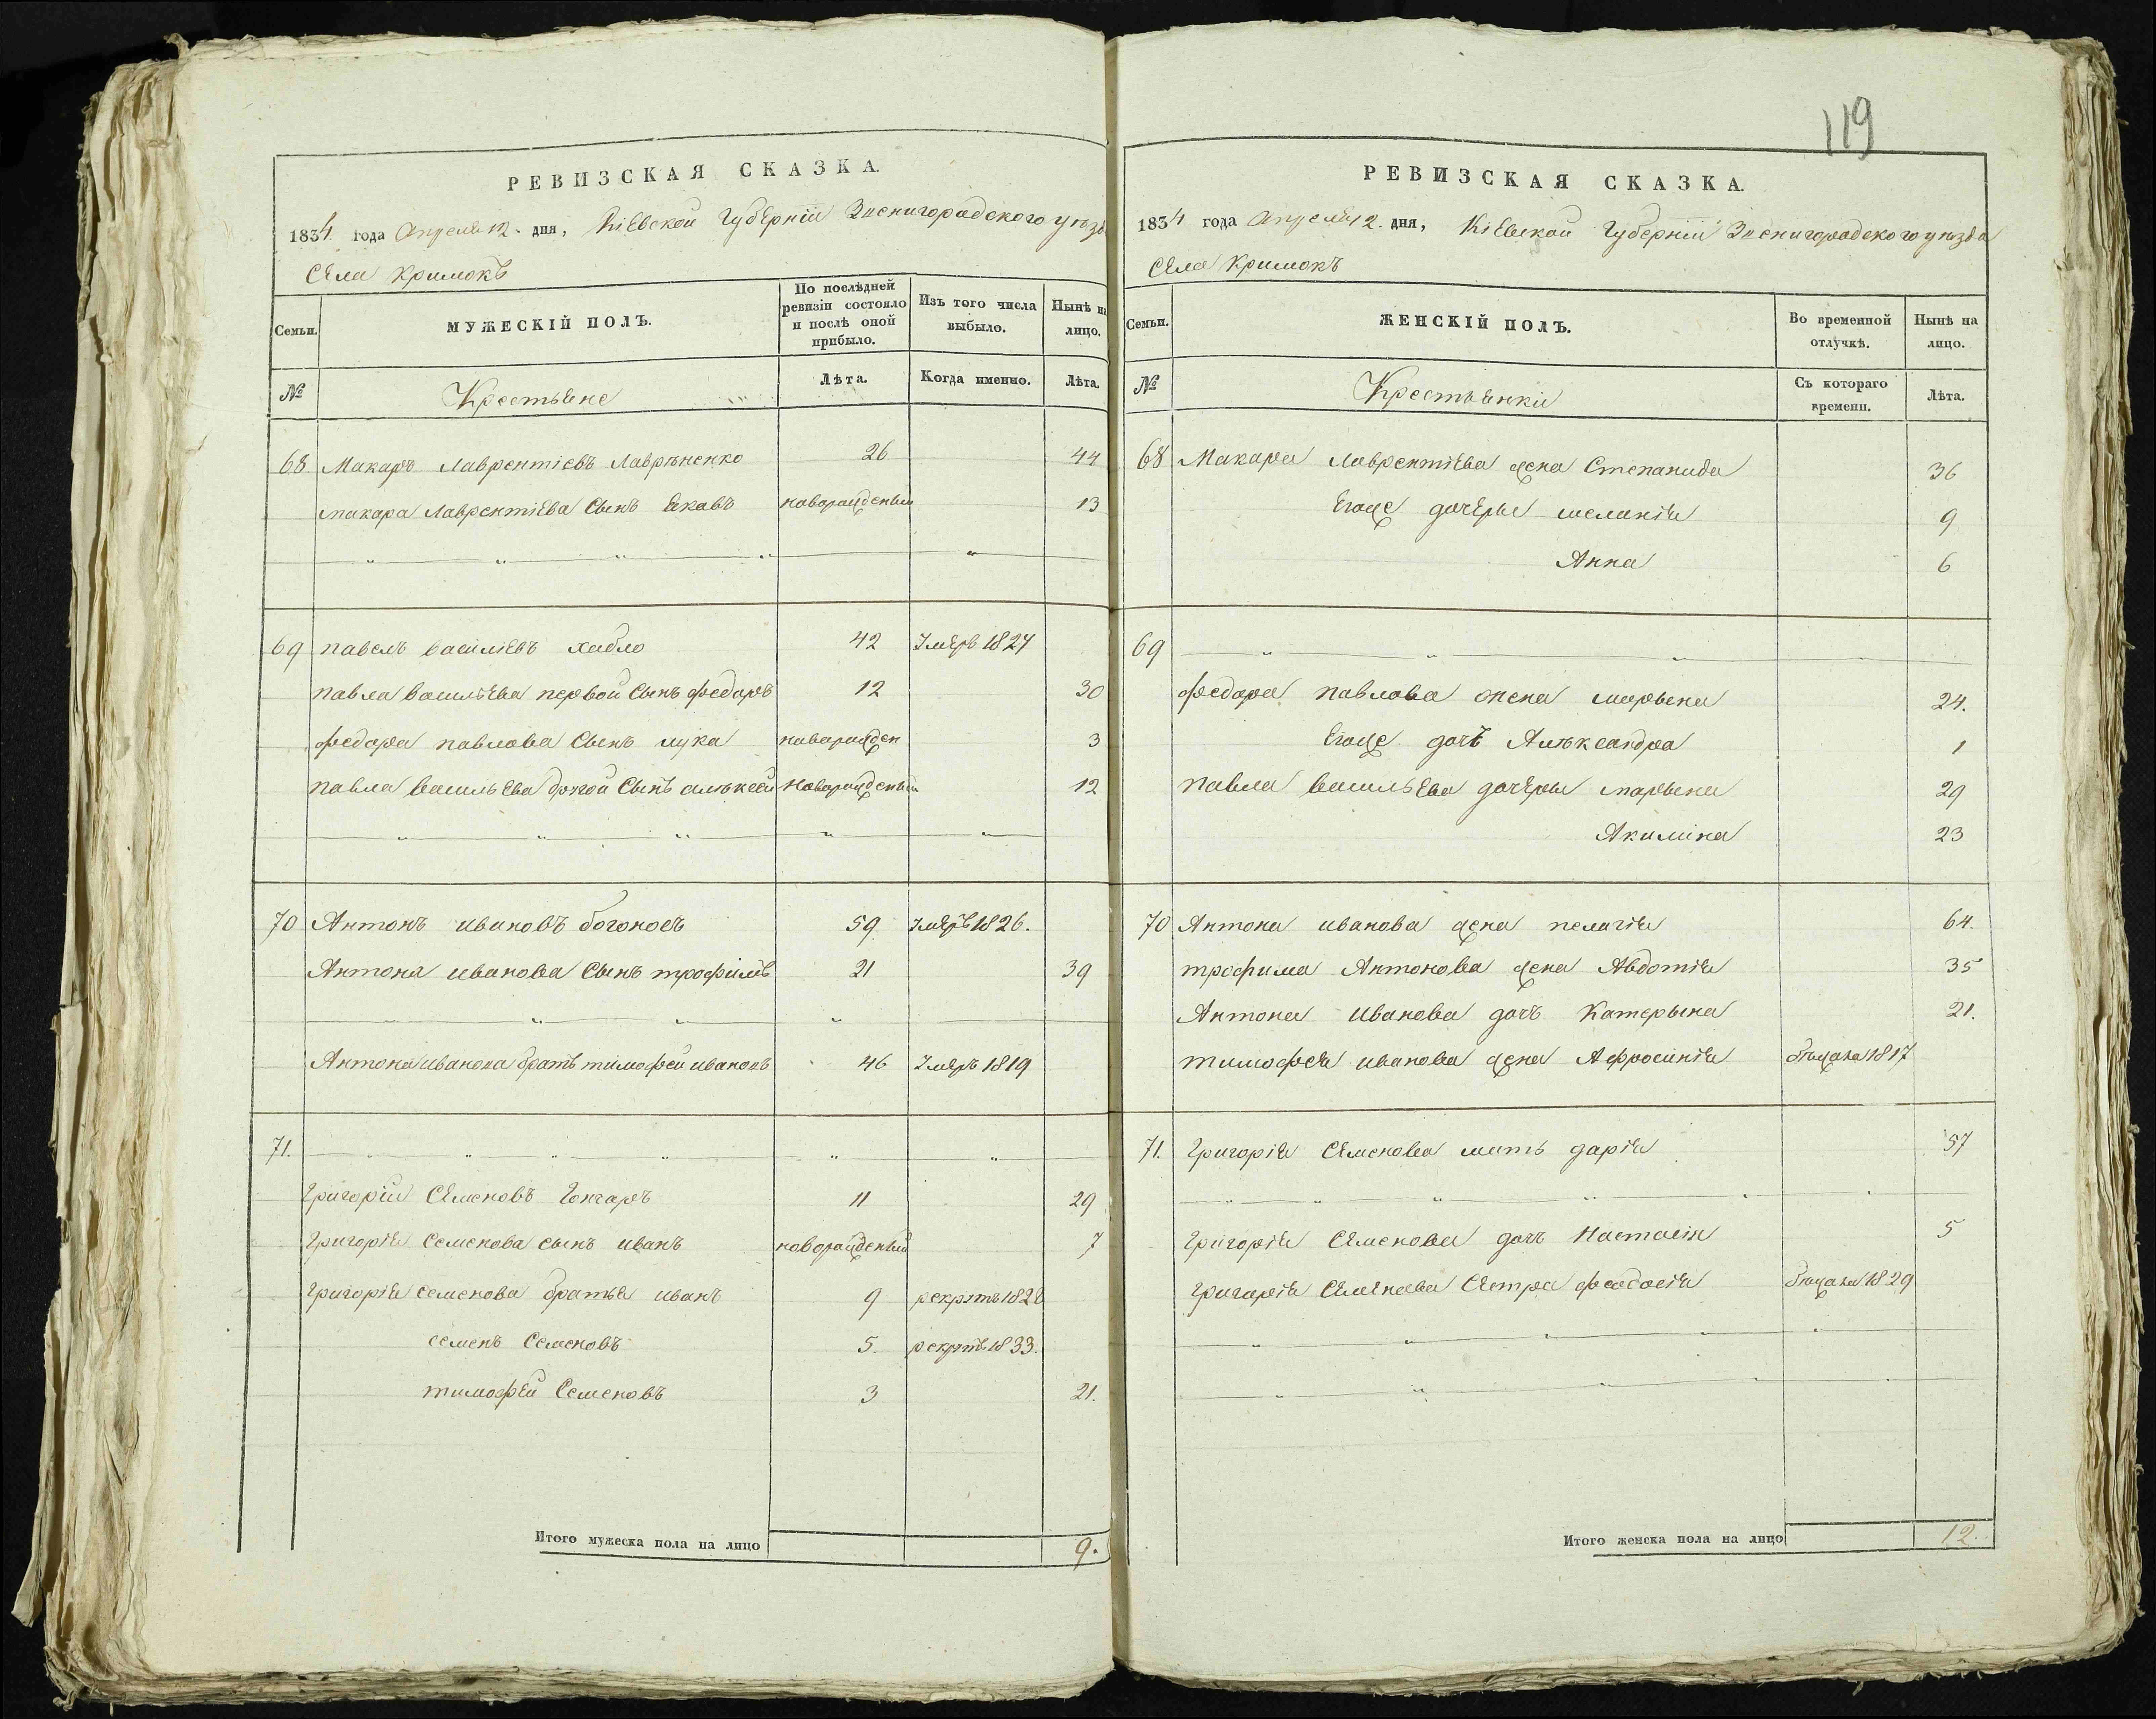 119
РЕВИЗСКАЯ СКАЗКА.
1834 года Апреля 12. дня, Кіевской Губерніи Звенигородского уезд
Села Кримокъ
Семьи. МУЖЕСКІЙ ПОЛЪ. По послѣдней ревизіи состояло и послѣ оной прибыло. Изъ того числа выбыло. Нынѣ на лицо.
№ Крестьяне Лѣта. Когда именно. Лѣта.
68 Макаръ Лаврентіевъ Лавръненко 26 44
макара Лаврентіева Сынъ Якавъ новорожденый 13
69 павелъ василіевъ хабло 42 Умеръ 1827
павла василіева первой Сынъ федоръ 12 30
федора павлова Сынъ лука новорожден 3
павла васильева другой Сынъ алѣксей новорожденый 12
70 Антонъ ивановъ богоносъ 59 Умеръ 1826.
Антона иванова Сынъ трофимъ 21 39
Антона иванова братъ тимофей ивановъ 46 Умеръ 1819
71.
григорій Семеновъ Гончаръ 11 29
григорія Семенова сынъ иванъ новорожденый 7
григорія семенова братья иванъ 9 рекрутъ 1828
семенъ Семеновъ 5. рекрутъ 1833.
тимофей Семеновъ 3 21.
Итого мужеска пола на лицо 9.
РЕВИЗСКАЯ СКАЗКА.
1834 года Апреля 12. дня, Кіевской Губерніи Звенигородского уезда
Села Кримокъ
Семьи. ЖЕНСКІЙ ПОЛЪ. Во временной отлучкѣ. Нынѣ на лицо.
№ Крестьянки Съ котораго времени. Лѣта.
68 Макара Лаврентіева жена Степанида 36
Егоже дочерьи меланія 9
Анна 6
69
федора павлова жена марьена 24.
Егоже дочъ Алѣксандра 1
павла васильева дочерьи марьена 29
Акилина 23
70 Антона иванова жена пелагія 64.
трофима Антонова жена Авдотія 35
Антона иванова дочъ Катерына 21.
тимофея иванова жена Афросинія бѣжала 1817
71. григорія Семенова мать дарія 57
григорія Семенова дочъ Настасія 5
григорія Семенова Сестра феодосія бѣжала 1829
Итого женска пола на лицо 12.